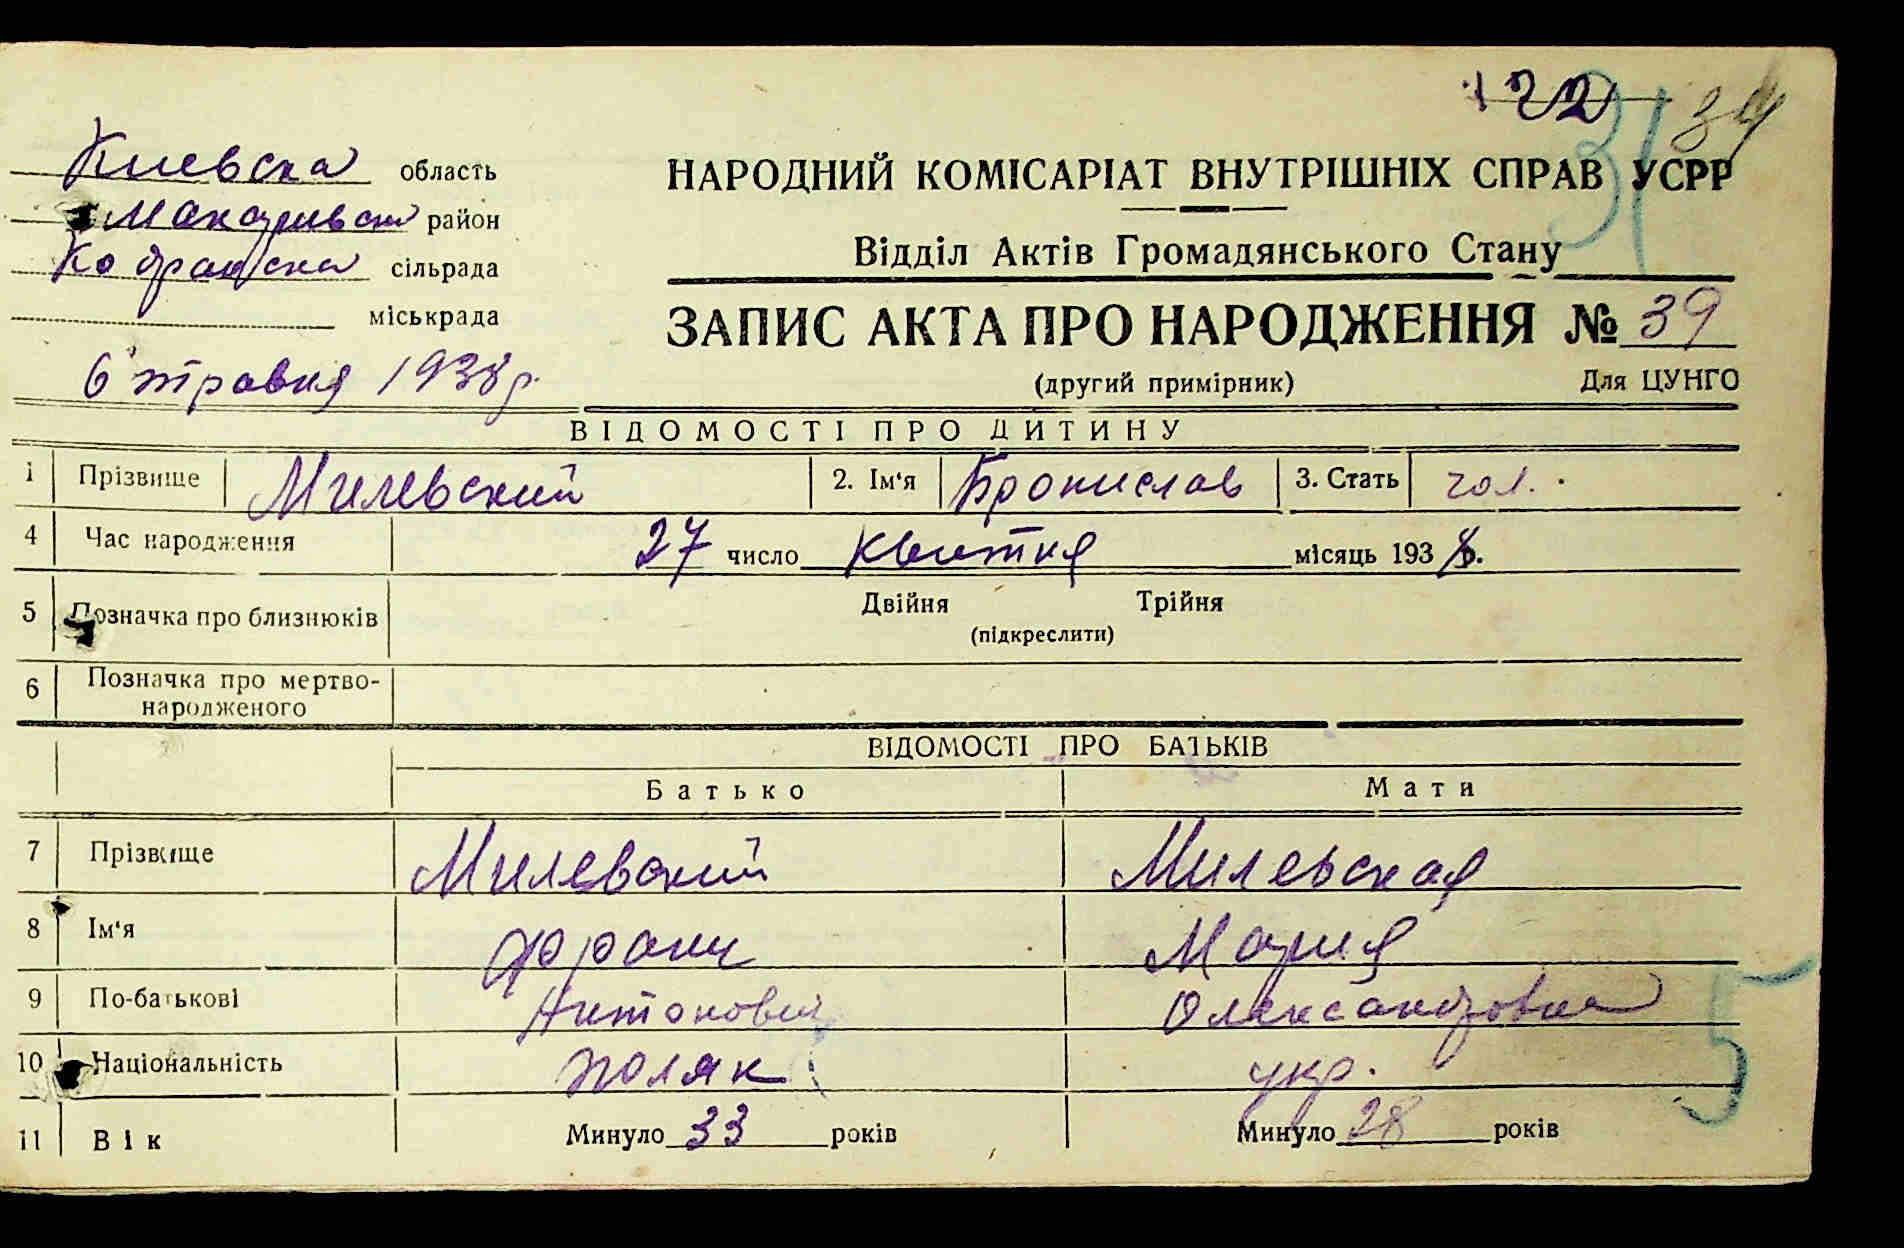 122 31 34
Киевска область
Макаривский район
сільрада
міськрада
НАРОДНИЙ КОМІСАРІАТ ВНУТРІШНІХ СПРАВ УСРР
Відділ Актів Громадянського Стану
ЗАПИС АКТА ПРО НАРОДЖЕННЯ № 39
6 травня 1938 р.
(другий примірник) Для ЦУНГО
ВІДОМОСТІ ПРО ДИТИНУ
1 Прізвище Милевский 2. Ім'я Бронислав 3. Стать чол.
4 Час народження 27 число квитня місяць 1938 р.
5 Позначка про близнюків Двійня Трійня
(підкреслити)
6 Позначка про мертво-
народженого
ВІДОМОСТІ ПРО БАТЬКІВ
Батько Мати
7 Прізвище Милевский Милевская
8 Ім'я Франц Мария
9 По-батькові Антонович Олександровна
10 Національність поляк укр.
11 Вік Минуло 33 років Минуло 28 років
5